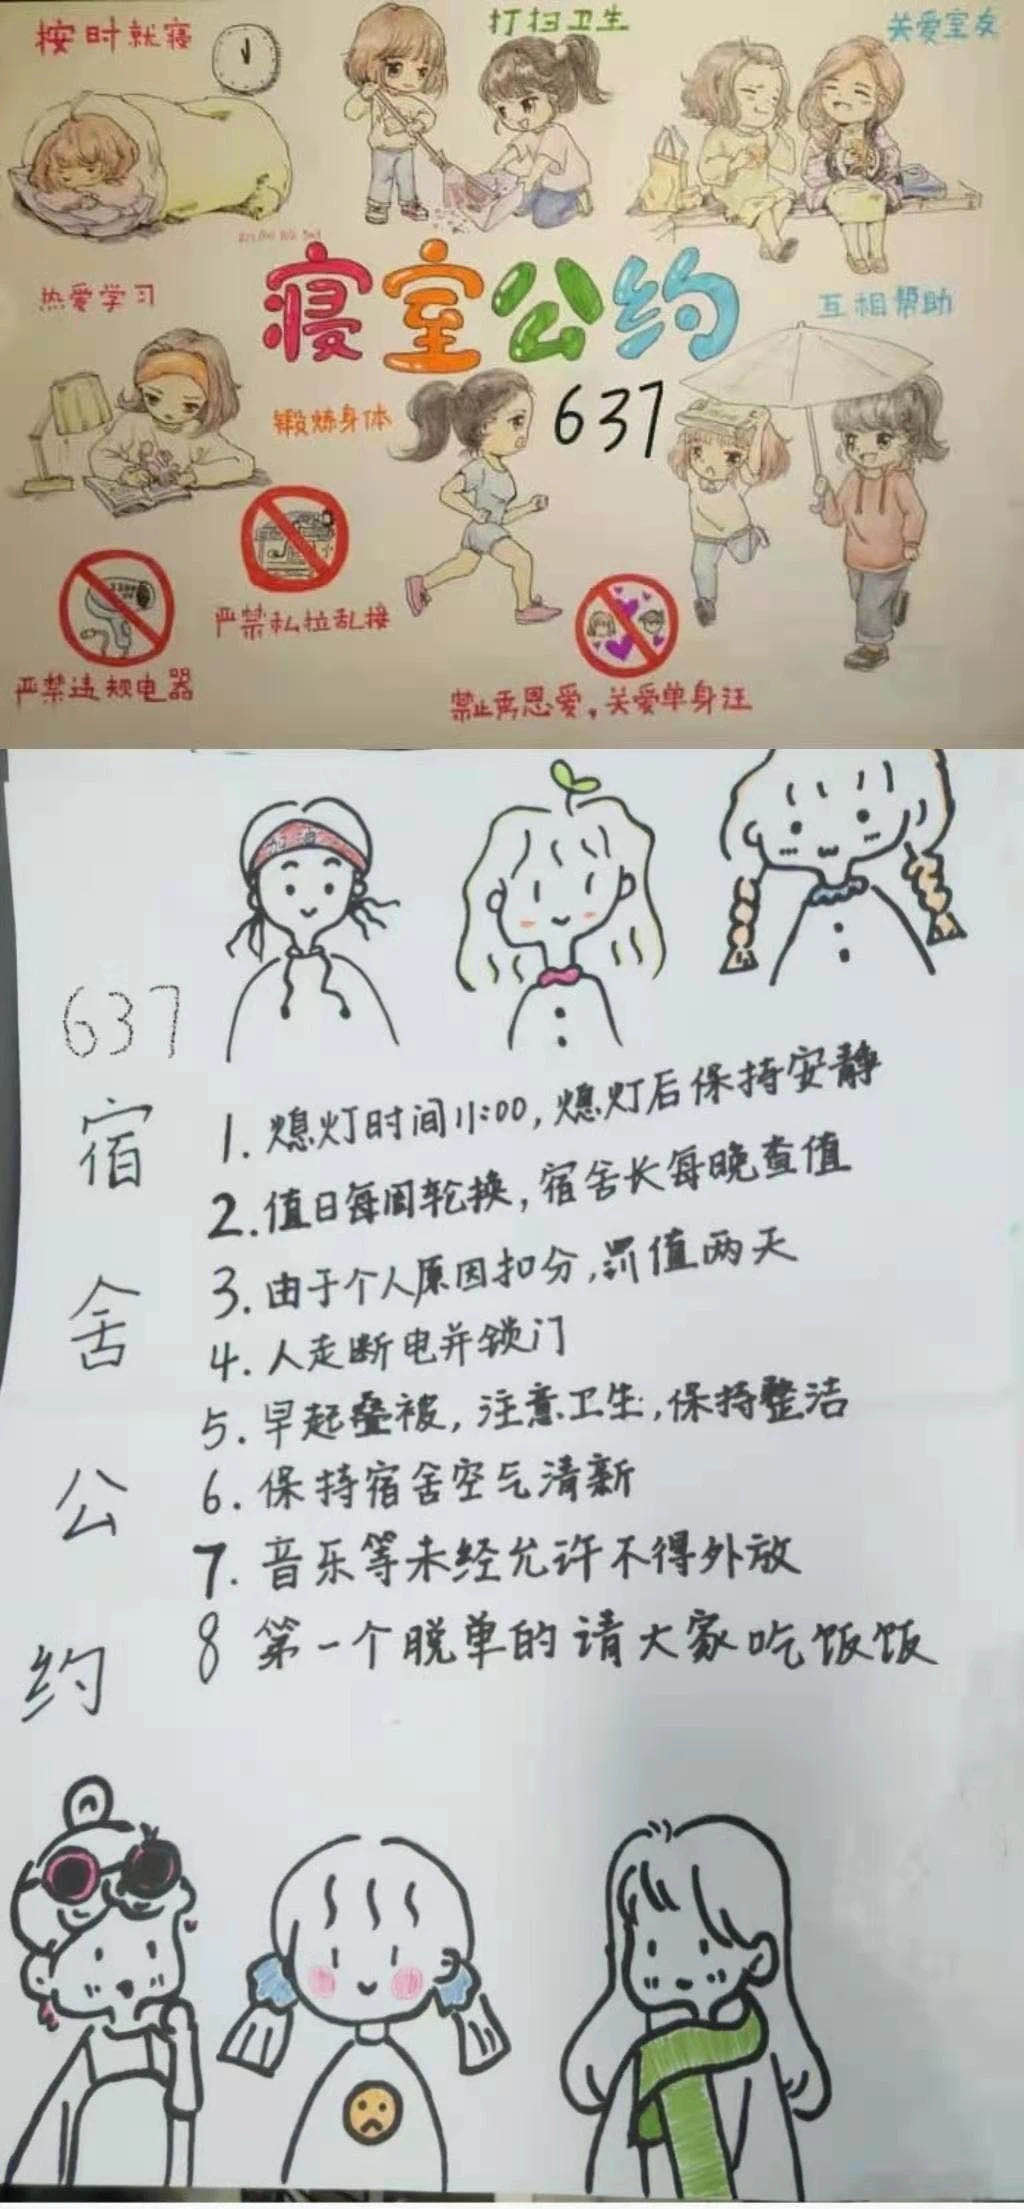 按时就寝
打扫卫生
关爱室友
热爱学习
寝室公约
互相帮助
锻炼身体
637
严禁私拉乱接
严禁违规电器
禁止秀恩爱，关爱单身汪
637
宿舍公约
1. 熄灯时间11:00，熄灯后保持安静
2. 值日每周轮换，宿舍长每晚查值
3. 由于个人原因扣分，罚值两天
4. 人走断电并锁门
5. 早起叠被，注意卫生，保持整洁
6. 保持宿舍空气清新
7. 音乐等未经允许不得外放
8 第一个脱单的请大家吃饭饭